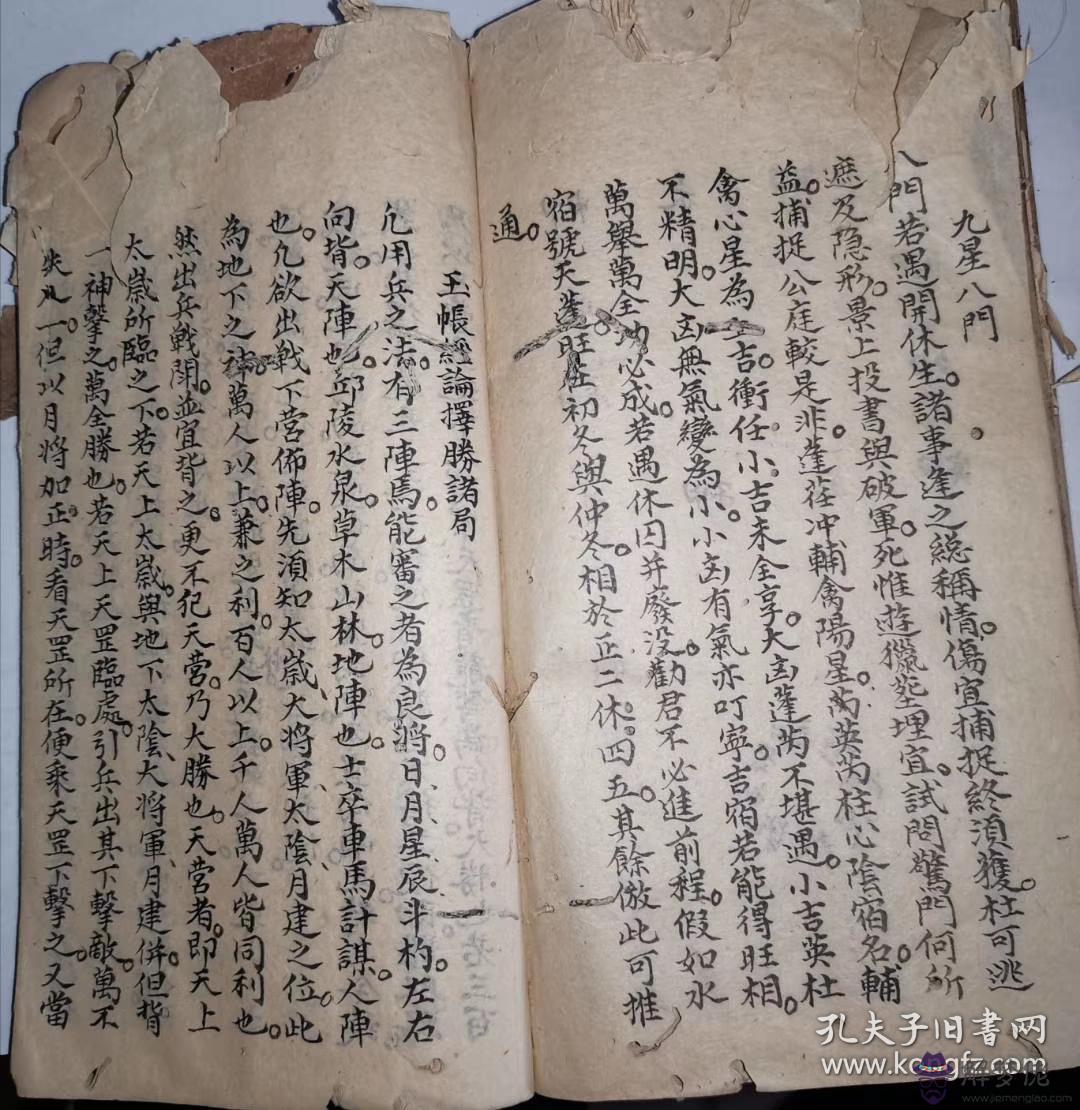 九星八門
八門若遇開休生。諸事逢之総稱情。傷宜捕捉終須獲。杜可逃
遮及隐形。景上投書與破軍。死惟遊獵塟埋宜。試問驚門何所
益。捕捉公庭較是非。蓬任冲輔禽陽星。芮英芮柱心陰宿名。輔
禽心星為上吉。衝任小吉未全享。大凶蓬芮不堪遇。小吉英杜
不精明。大凶無氣變為小。小凶有氣亦叮寧。吉宿若能得旺相。
萬舉萬全功必成。若遇休囚并廢没。勸君不必進前程。假如水
宿號天蓬。旺在初冬與仲冬。相於正二休四五。其餘倣此可推
通。
玉帳經論擇勝諸局
凢用兵之法。有三陣焉。能審之者為良將。日月星辰斗杓。左右
向背。天陣也。邱陵水泉。草木山林。地陣也。士卒車馬計謀。人陣
也。凢欲出戰下营佈陣。先須知太歲、大将軍、太陰、月建之位。此
為地下之神。萬人以上。兼之利。百人以上。千人萬人皆同利也。
然出兵戰鬧。並宜背之。更不犯天营。乃大勝也。天营者。即天上
太歲所臨之下。若天上太歲。與地下太陰、大将軍、月建併。但背
一神擊之。萬全勝也。若天上天罡臨處。引兵出其下擊敵。萬不
失一。但以月将加正時。看天罡所在。便乘天罡下擊之。又當
孔夫子旧书网
www.kongfz.com
解梦庞
www.jiemenglao.com